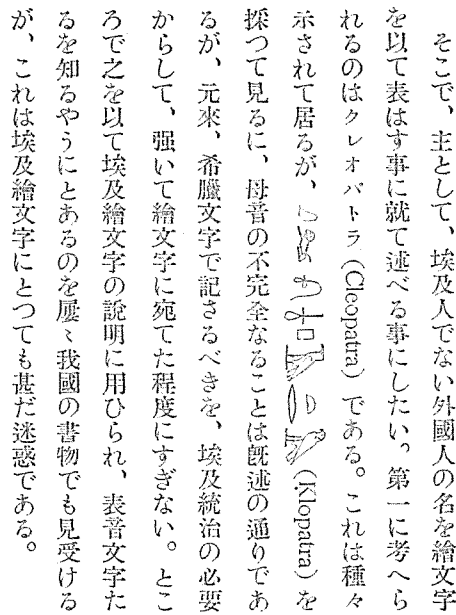 そこで、主として、埃及人でない外國人の名を繪文字
を以て表はす事に就て述べる事にしたい。第一に考へら
れるのはクレオパトラ(Cleopatra)である。これは種々
示されて居るが、(Klopatra)を
採つて見るに、母音の不完全なることは旣述の通りであ
るが、元來、希臘文字で記さるべきを、埃及統治の必要
からして、强いて繪文字に宛てた程度にすぎない。とこ
ろで之を以て埃及繪文字の說明に用ひられ、表音文字た
るを知るやうにとあるのを屢〻我國の書物でも見受ける
が、これは埃及繪文字にとつても甚だ迷惑である。